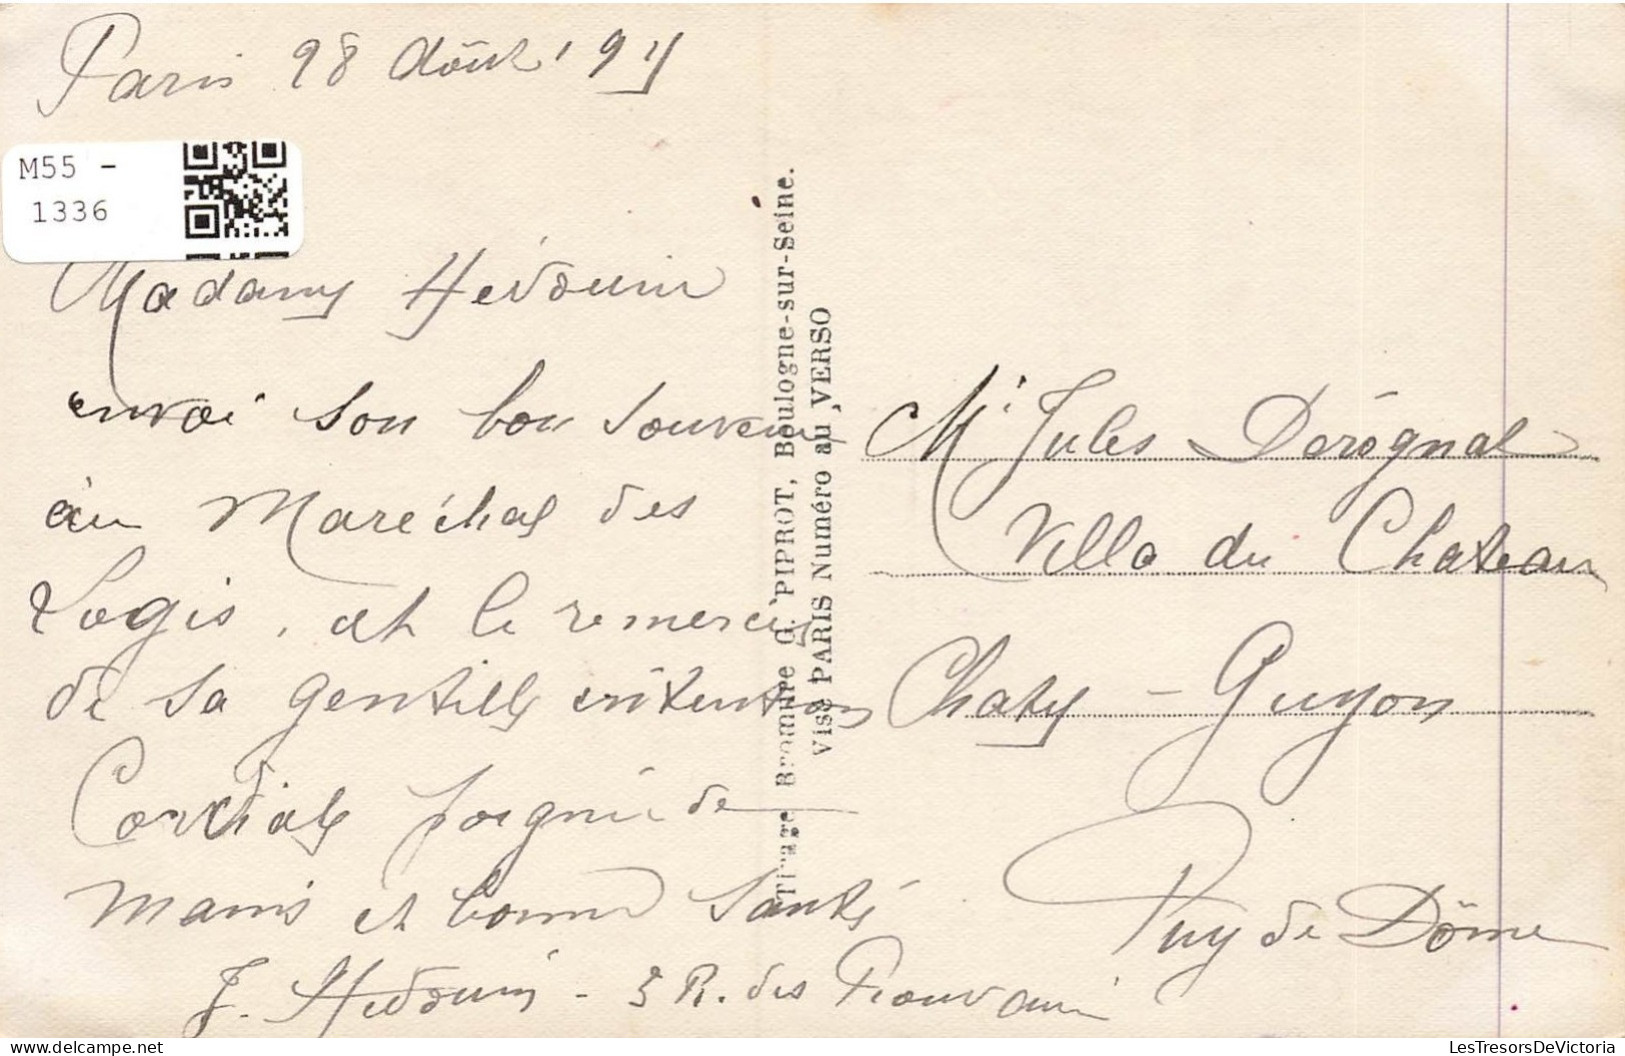 Paris 28 Août 191
M55 -
1336
Madame Hédouin
envoi son bon souvenir
au Maréchal des
Logis, et le remercie
de sa gentille intention
Cordiale poignée de
mains et bonne santé
J. Hédouin - 3 R. des Prouvaires
Tirage Bromure G. PIPROT, Boulogne-sur-Seine.
Visé PARIS Numéro au VERSO
Mr Jules Dérégnal
Villa du Chateau
Chaty - Guyon
Puy de Dôme
LesTresorsDeVictoria